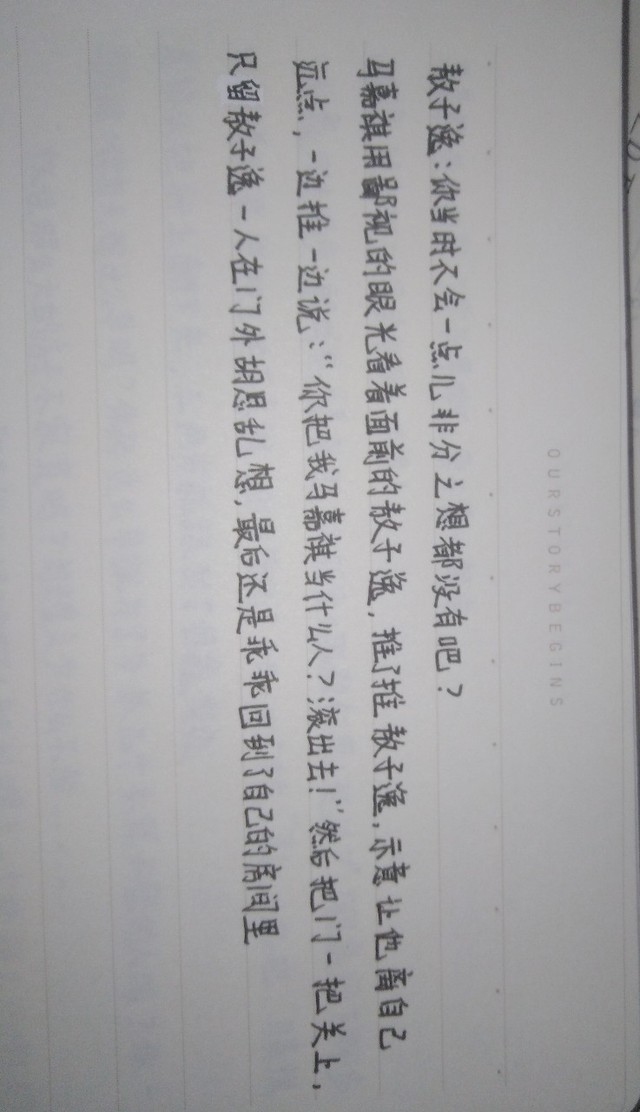 OURSTORYBEGINS
敖子逸:你当时不会一点儿非分之想都没有吧?
马嘉祺用鄙视的眼光看着面前的敖子逸,推了推敖子逸,示意让他离自己
远点,一边推一边说:“你把我马嘉祺当什么人?滚出去!”然后把门一把关上,
只留敖子逸一人在门外胡思乱想,最后还是乖乖回到了自己的房间里